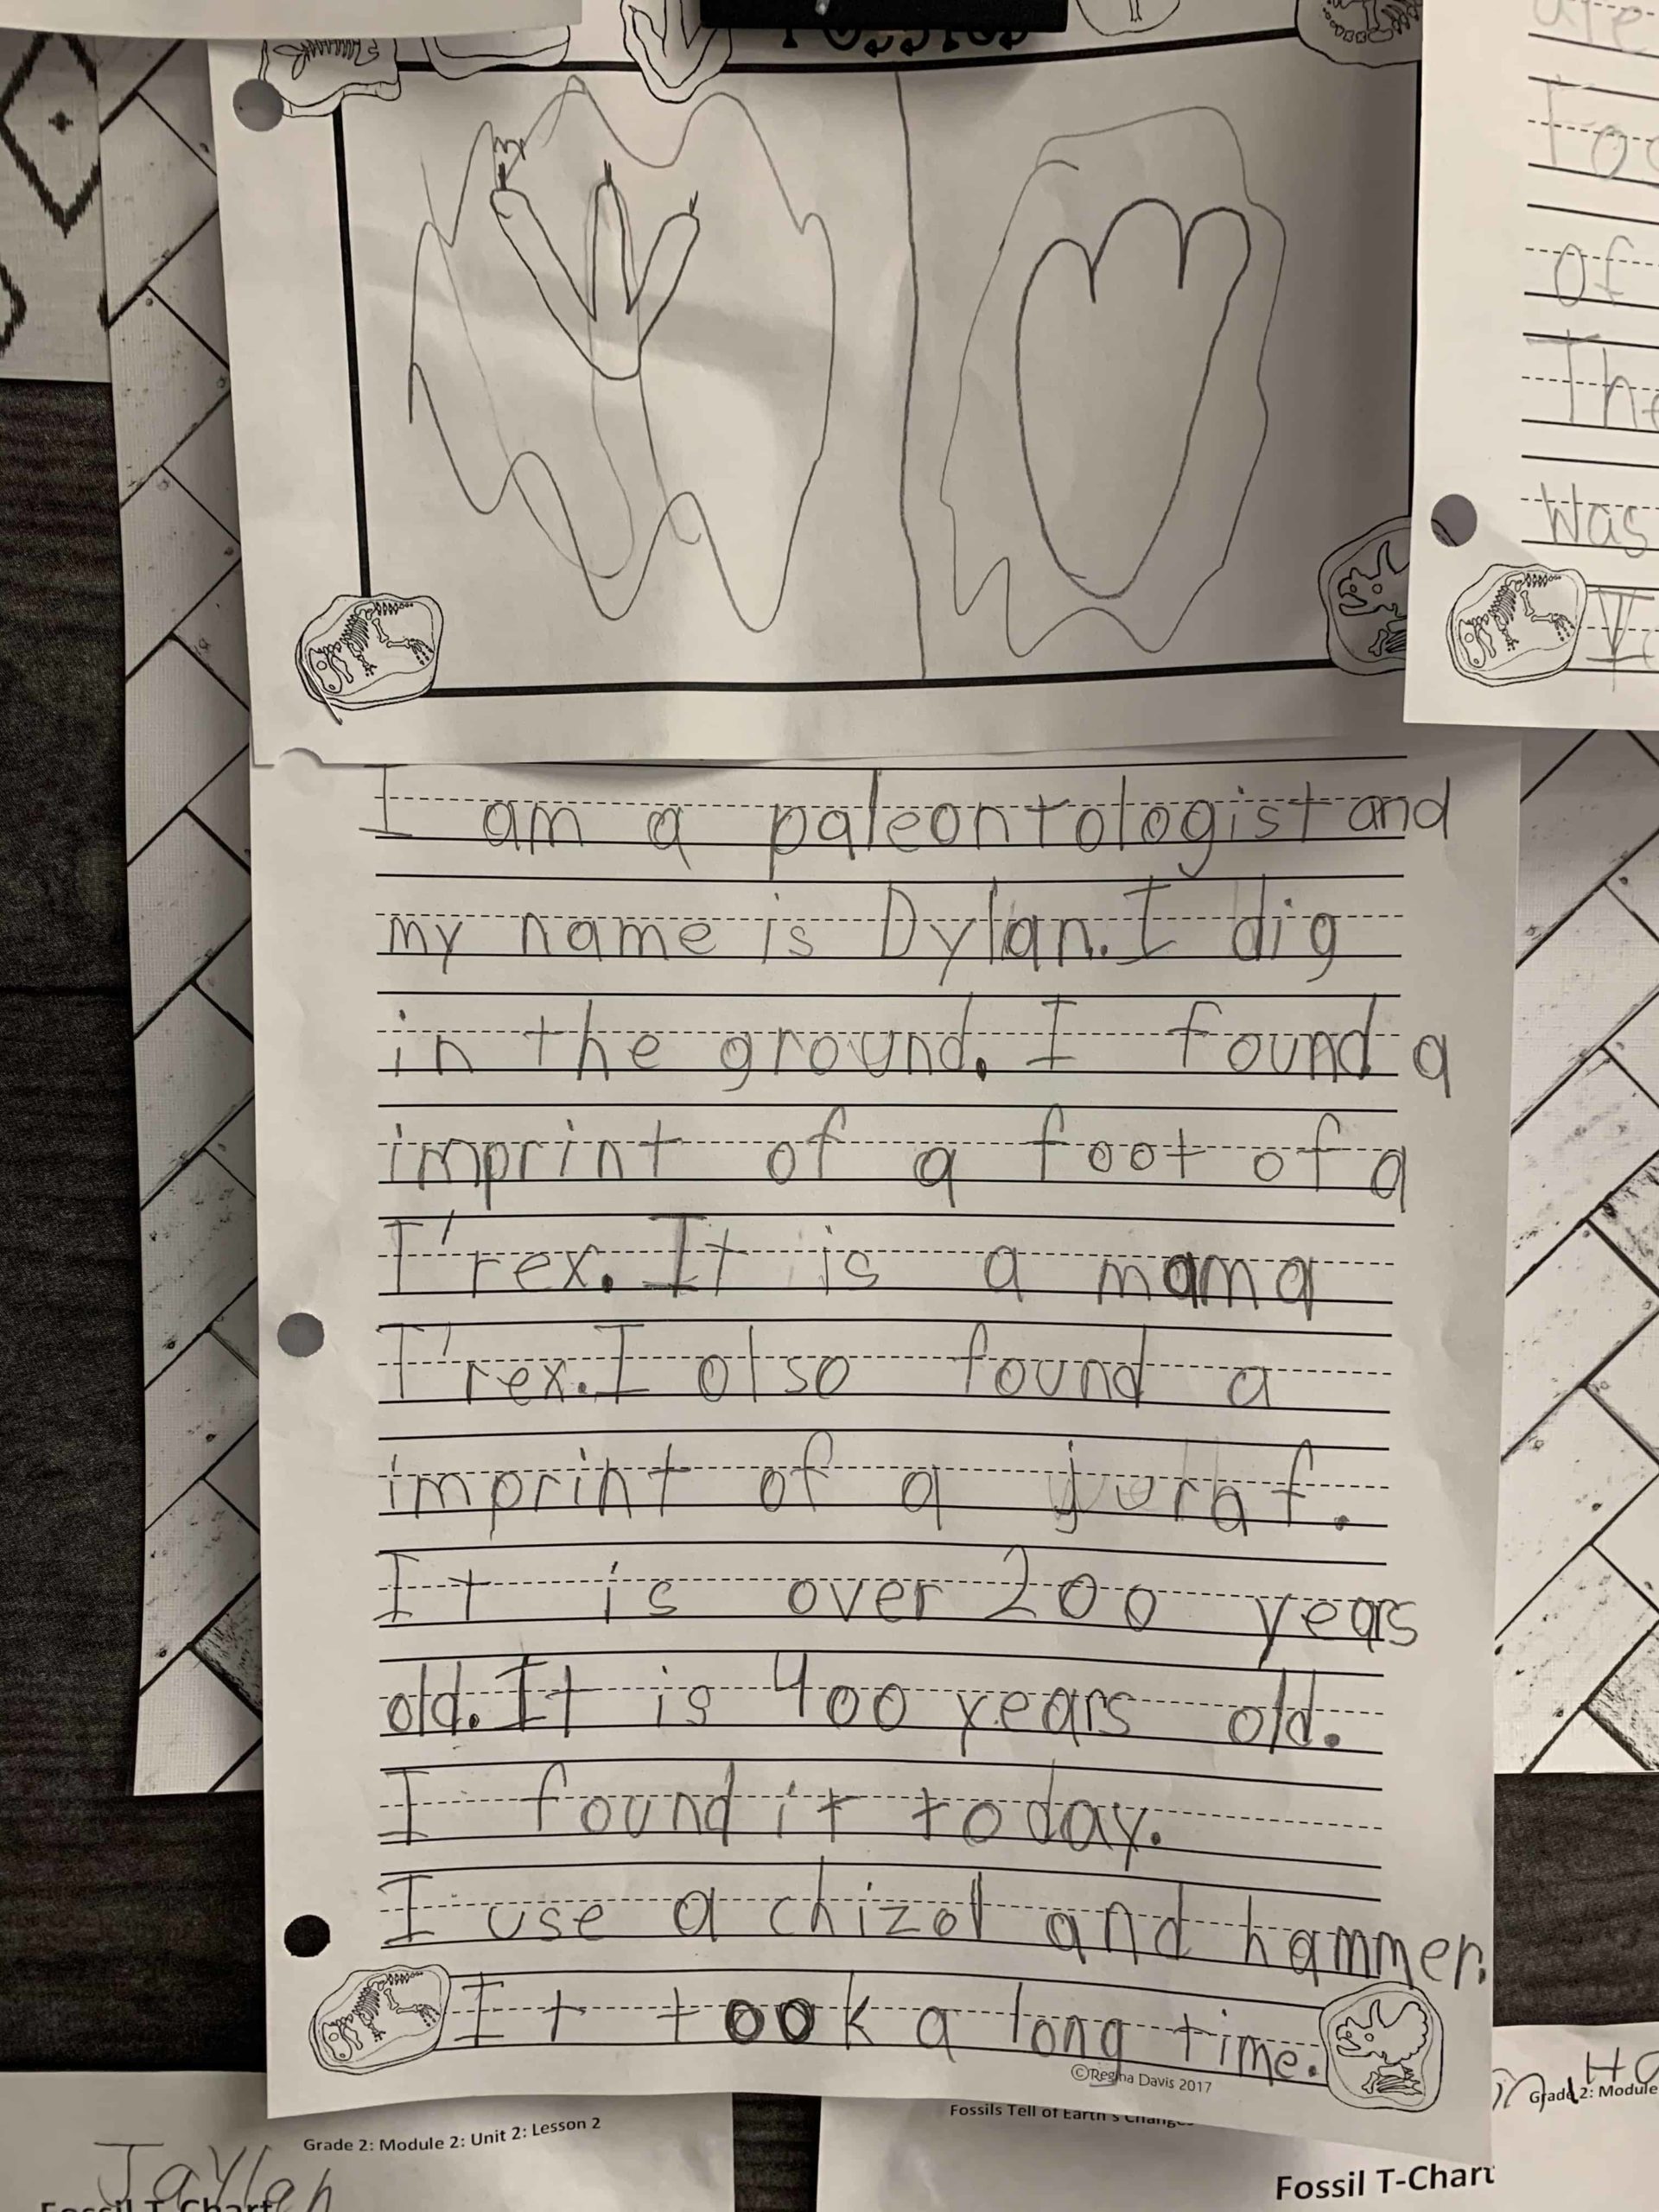 I am a paleontologist and
my name is Dylan. I dig
in the ground. I found a
imprint of a foot of a
T'rex. It is a mama
T'rex. I olso found a
imprint of a juraf.
It is over 200 years
old. It is 400 years old.
I found it today.
I use a chizol and hammer.
It took a long time.
©Regina Davis 2017
of
was
Fossils Tell of Earth's
Grade 2: Module
Grade 2: Module 2: Unit 2: Lesson 2
Jaylah
Fossil T-Chart
Fossil T-Chart